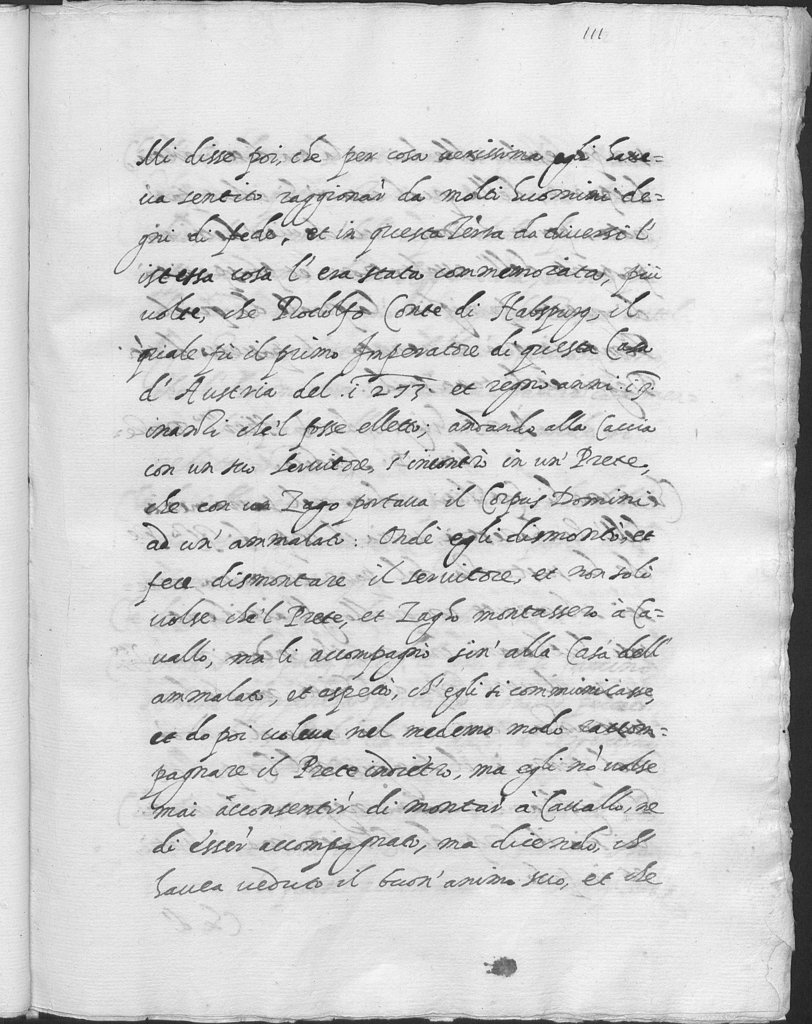 111
Mi disse poi, che per cosa verissima egli have=
va sentito raggionar da molti huomini de=
gni di fede, et in questa Terra da diversi l'
istessa cosa l' era stata commemorata, più
volte, che Rodolfo Conte di Habspurg, il
quale fù il primo Imperatore di questa Casa
d' Austria del .1273. et regnò anni .19.
inanzi che'l fosse elletto; andando alla Caccia
con un suo servitore, s' incontrò in un' Prete,
che con un Zago portava il Corpus Domini
ad un' ammalato: Onde egli dismontò, et
fece dismontare il servitore, et non soli
volse che'l Prete, et Zago montassero à Ca=
vallo, mà li accompagnò sin' alla Casa dell'
ammalato, et aspettò, ch' egli si communicasse,
et do poi voleva nel medemo modo raccom=
pagnare il Prete indietro, ma egli nò volse
mai acconsentir di montar à Cavallo, ne
di esser accompagnato, ma dicendo, ch
havea veduto il buon' animo suo, et che